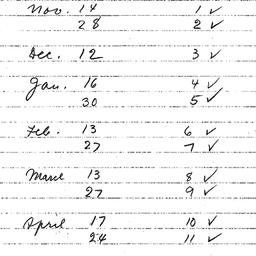 Nov. 14 1 ✓
28 2 ✓
Dec. 12 3 ✓
Jan. 16 4 ✓
30 5 ✓
Feb. 13 6 ✓
27 7 ✓
March 13 8 ✓
27 9 ✓
April 17 10 ✓
24 11 ✓